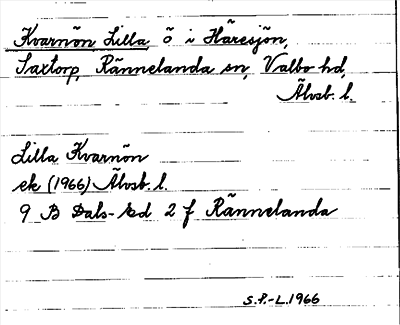 Kvarnön, Lilla ö i Häresjön,
Saxtorp, Rännelanda sn, Valbo hd,
Älvsb. l.
Lilla Kvarnön
ek (1966) Älvsb. l.
9 B Dals-Ed 2 f Rännelanda
S.P.-L. 1966